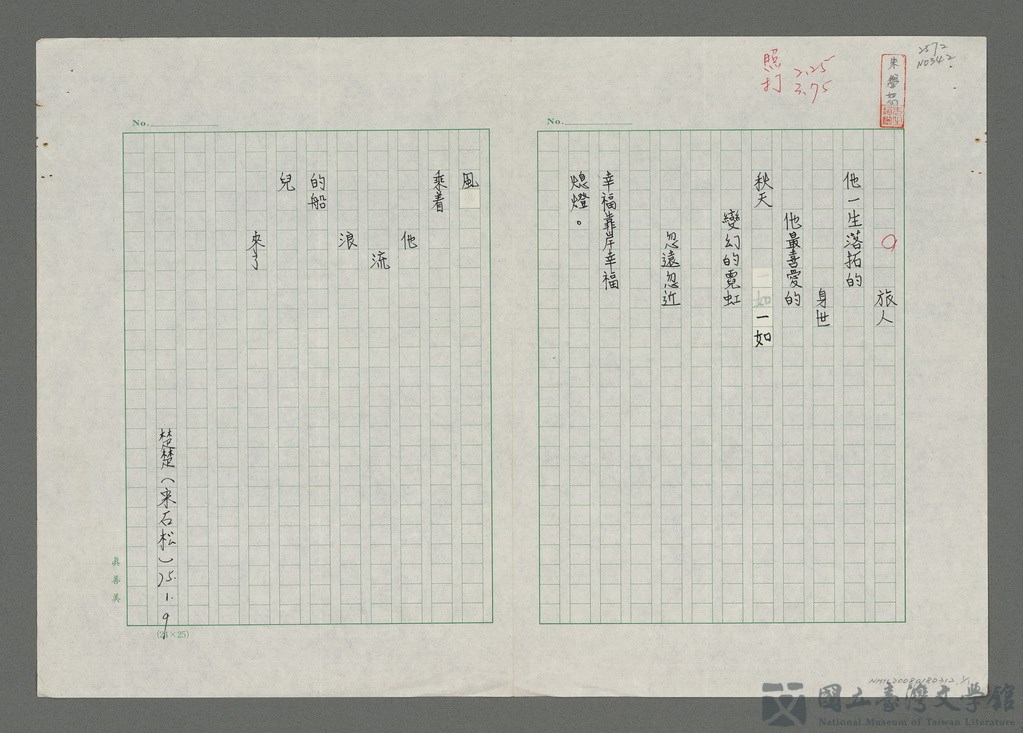 2572
NO342
朱學恕
照 2.25
打 3.75
No.
旅人
他一生落拓的
身世
他最喜愛的
秋天 一如
變幻的霓虹
忽遠忽近
幸福靠岸幸福
熄燈。
No.
風
乘着
他
流
浪
的船
兒
來了
楚楚(宋石松)75.1.9
真善美
(24×25)
國立臺灣文學館
National Museum of Taiwan Literature